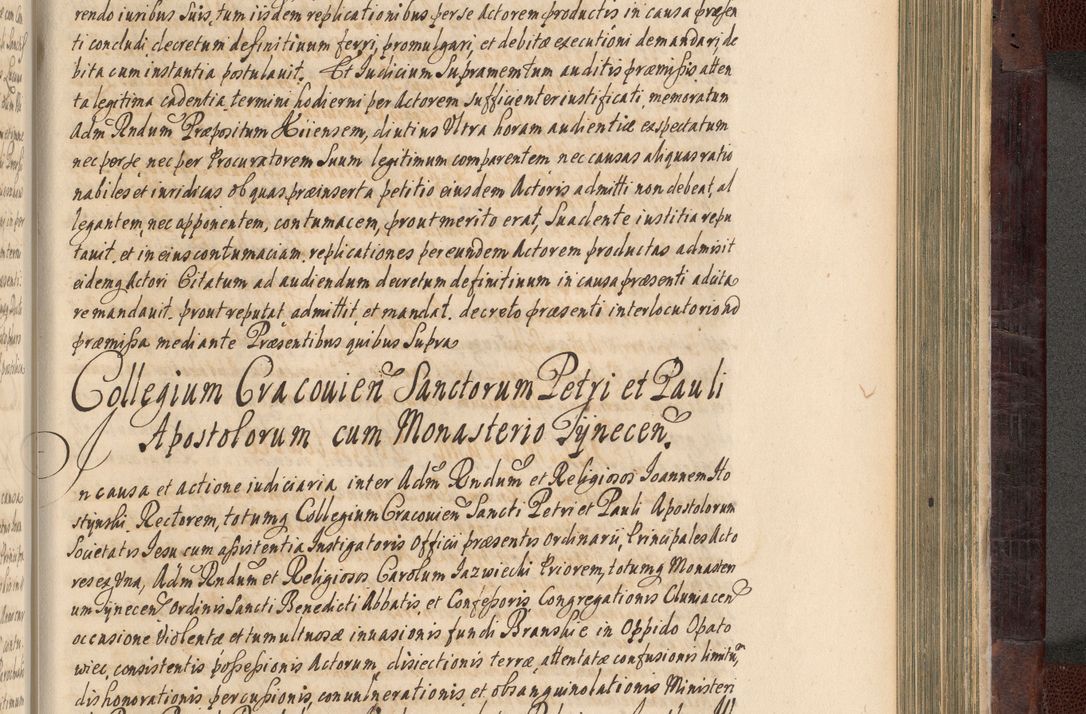 rendo iuribus suis, tum iisdem replicationibus per se Actorem productis in causa præsen
ti concludi decretum definitiuum ferri, promulgari, et debitæ executioni demandari de
bita cum instantia postulauit. Et Iudicium Supramemtum auditis præmissis atten
ta legitima cadentia termini hodierni per Actorem sufficienter iustificati memoratum
Adm Rndum Præpositum Kiiensem, diutius Ultra horam audientiæ exspectatum
nec per se nec per Procuratorem Suum legitimum comparentem nec causas aliquas ratio
nabiles et iuridicas ob quas præinserta petitio eiusdem Actoris admitti non debeat, al
legantem, nec opponentem, contumacem, prout merito erat, Suadente iustitia repu
tauit. et in eius contumaciam replicationes per eundem Actorem productas admisit
eidemq Actori Citatum ad audiendum decretum definitiuum in causa præsenti adcita
remandauit. prout reputat, admittit, et mandat. decreto præsenti interlocutorio ad
præmissa mediante Præsentibus quibus Supra
Collegium Cracouien Sanctorum Petri et Pauli
Apostolorum cum Monasterio Tynecen.
In causa et actione iudiciaria inter Adm Rndum et Religiosos Ioannem Ho
styński Rectorem, totumq Collegium Cracouien Sancti Petri et Pauli Apostolorum
Societatis Iesu cum assistentia Instigatoris Officii præsentis Ordinarii, Principales Acto
res ex Una, Adm Rndum et Religiosos Carolum Jazwiecki Priorem, totumq Monaster
um Tynecen Ordinis Sancti Benedicti Abbatis, et Confessoris Congregationis Cluniacen
occasione Violentæ et tumultuosæ inuasionis fundi Branskie in Oppido Opato
wiec, consistentis possessionis Actorum, disiectionis terræ, attentatæ confusionis limitu,
dishonorationis percussionis, conuulnerationis, et obsanguinolationis Ministeri